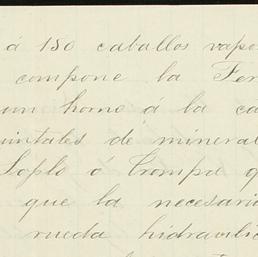 á 150 caballos vapo
compone la Fer
un horno á la ca
quintales de mineral
Soplo ó trompa q
que la necesaria
rueda hidraulic